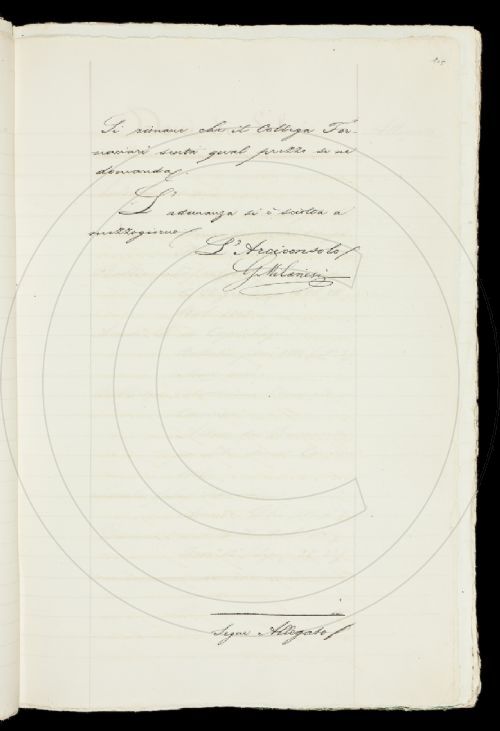 Si rimane che il Collega For-
naciari sentà qual prezzo se ne
domanda.
L'adunanza si è sciolta a
mezzogiorno
L'Arciconsolo
G Milanesi
Segue Allegato